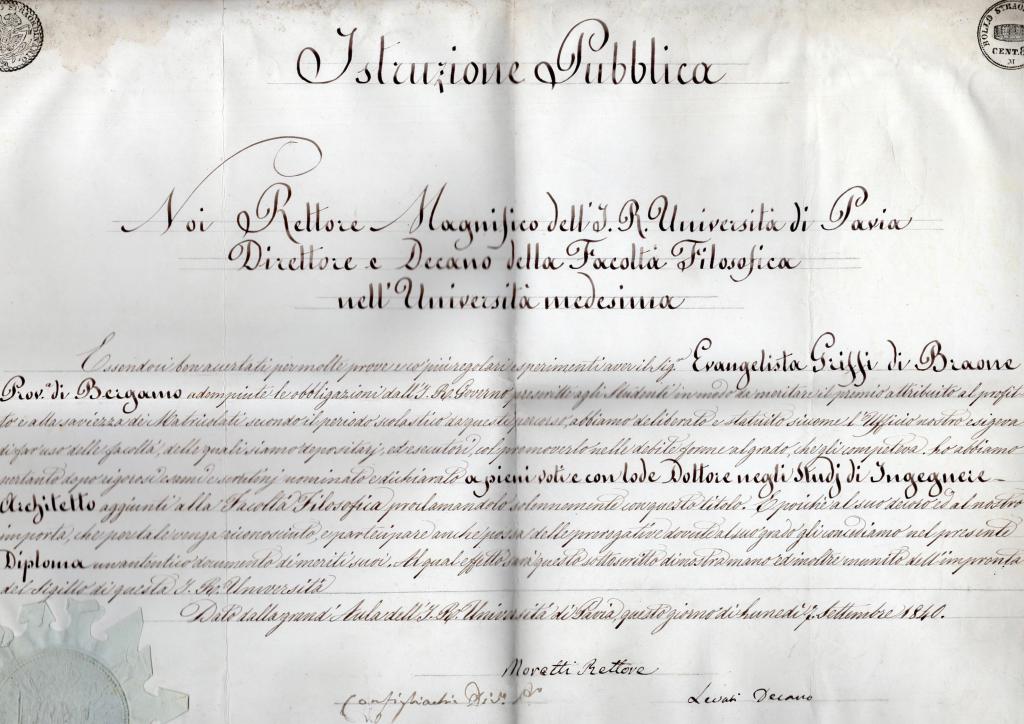 BOLLO STRAO
CENT. 8
M
Istruzione Pubblica
Noi Rettore Magnifico dell'I. R. Università di Pavia
Direttore e Decano della Facoltà Filosofica
nell'Università medesima
Essendoci ben accertati per molte prove e co' più regolari esperimenti aver il Sig.r Evangelista Griffi di Braone
Prov.a di Bergamo adempiute le obbligazioni dall'I. R. Governo prescritte agli Studenti in modo da meritare il premio attribuito al profit-
to e alla saviezza di Matricolati secondo il periodo scolastico da questi percorso, abbiamo deliberato e statuito siccome l'Ufficio nostro esigeva
di far uso delle facoltà, delle quali siamo depositarj, ed esecutori, col promoverlo nelle debite forme al grado, che gli competeva, ho abbiamo
pertanto dopo rigorosi esami e scrutinj nominato e dichiarato a pieni voti e con lode Dottore negli Studj di Ingegnere-
Architetto aggiunti alla Facoltà Filosofica proclamandolo solennemente con questo titolo. E poichè al suo decoro ed al nostro
importa, che per tale venga riconosciuto, e partecipare anche possa delle prerogative dovute al suo grado gli concediamo nel presente
Diploma un autentico documento di meriti suoi. Al qual effetto sarà questo sottoscritto di nostra mano ed inoltre munito dell'impronta
del Sigillo di questa I. R. Università
Dato dalla grand'Aula dell'I. R. Università di Pavia, questo giorno di lunedì 7. Settembre 1840.
Moretti Rettore
Configliachi Dir.e
Levati Decano